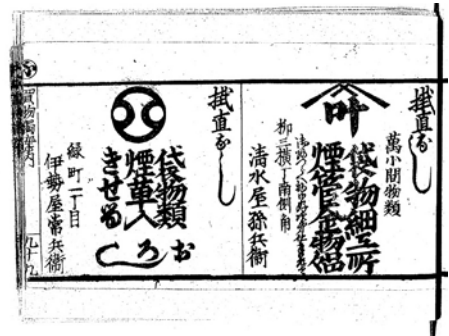 掛直なし
萬小間物類
叶
袋物細工所
煙管金物品〻
柳三横丁南側角
清水屋孫兵衛
掛直なし
袋物類
煙草入
きせる
おろし
緑町一丁目
伊勢屋常兵衛
買物獨案内
九十九